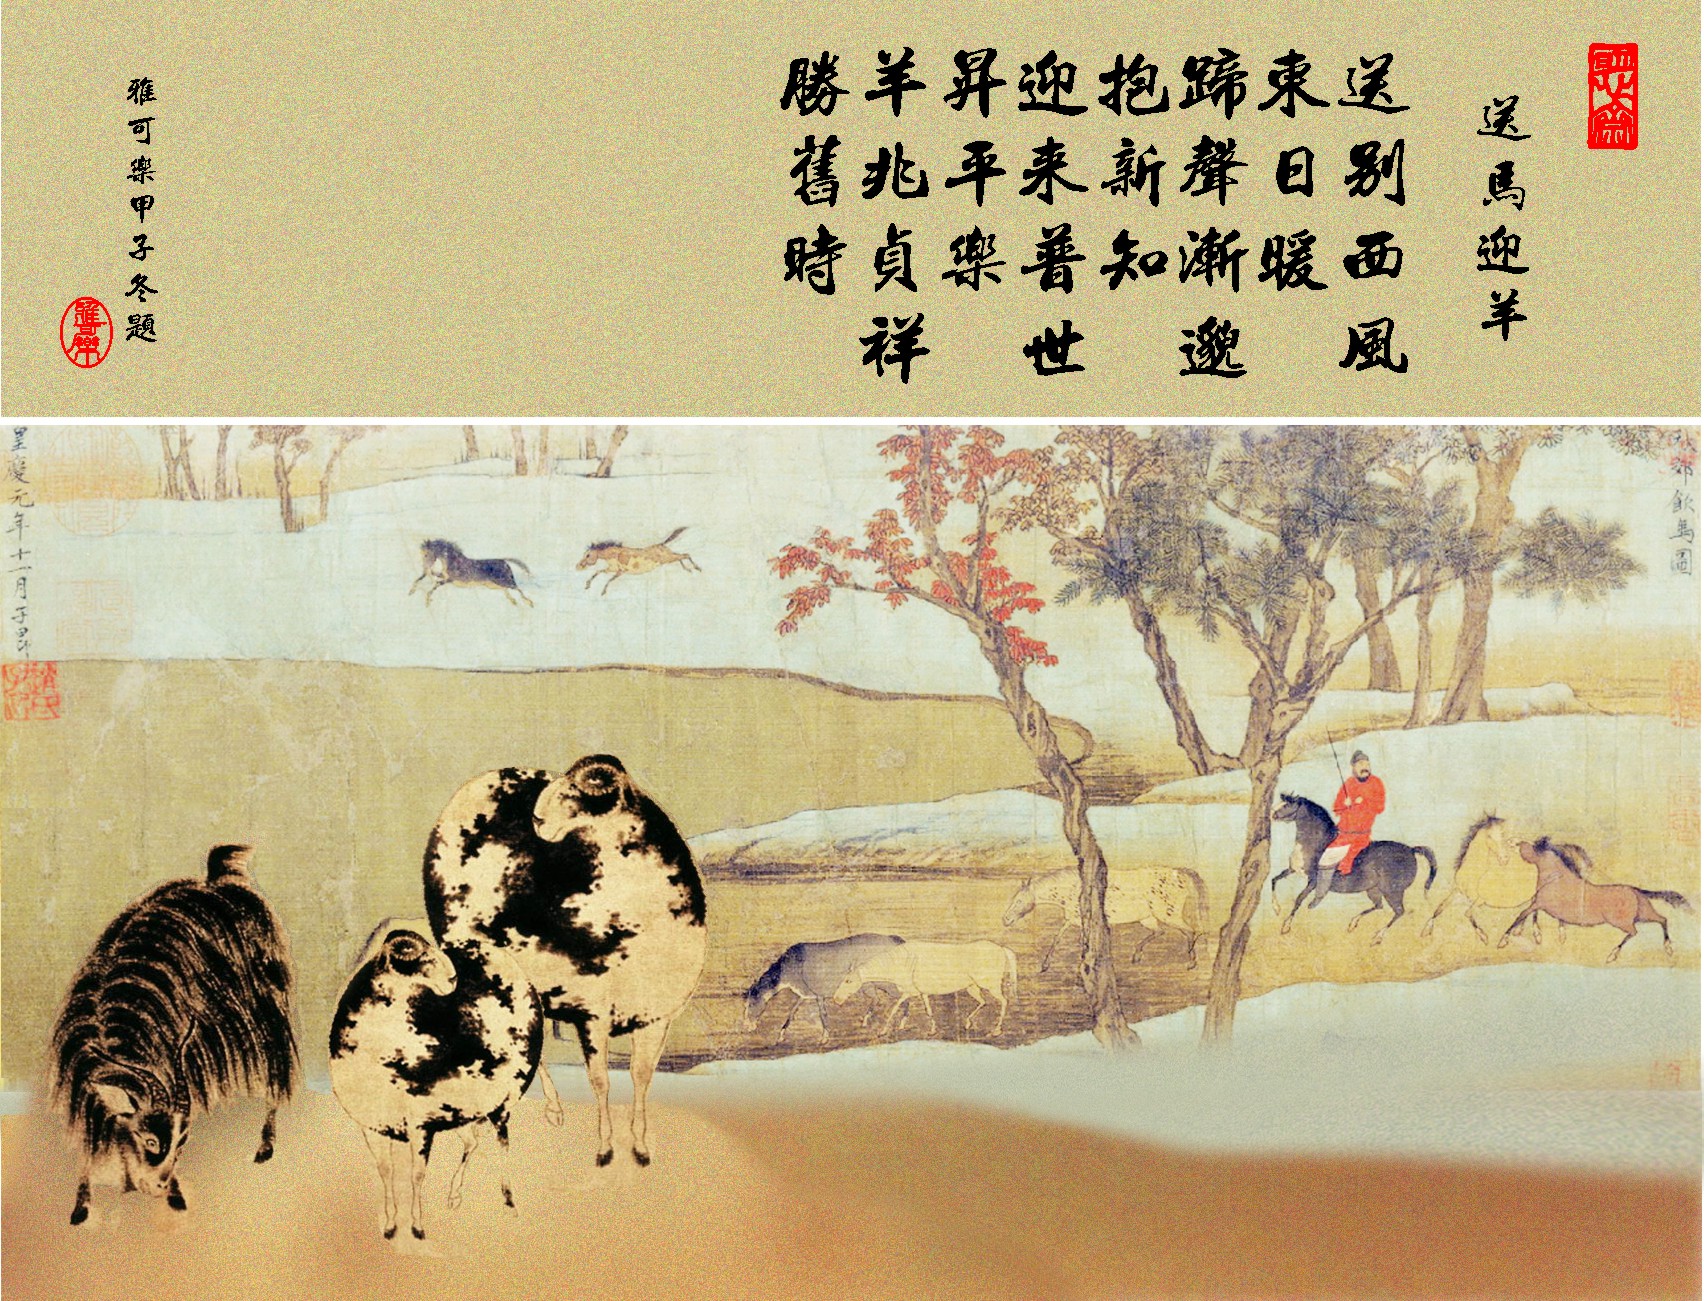 送馬迎羊
送别西風
東日暖
蹄聲漸邈
抱新知
迎来普世
昇平樂
羊兆貞祥
勝舊時
雅可樂甲子冬題
郊飲馬圖
皇慶元年十一月子昂